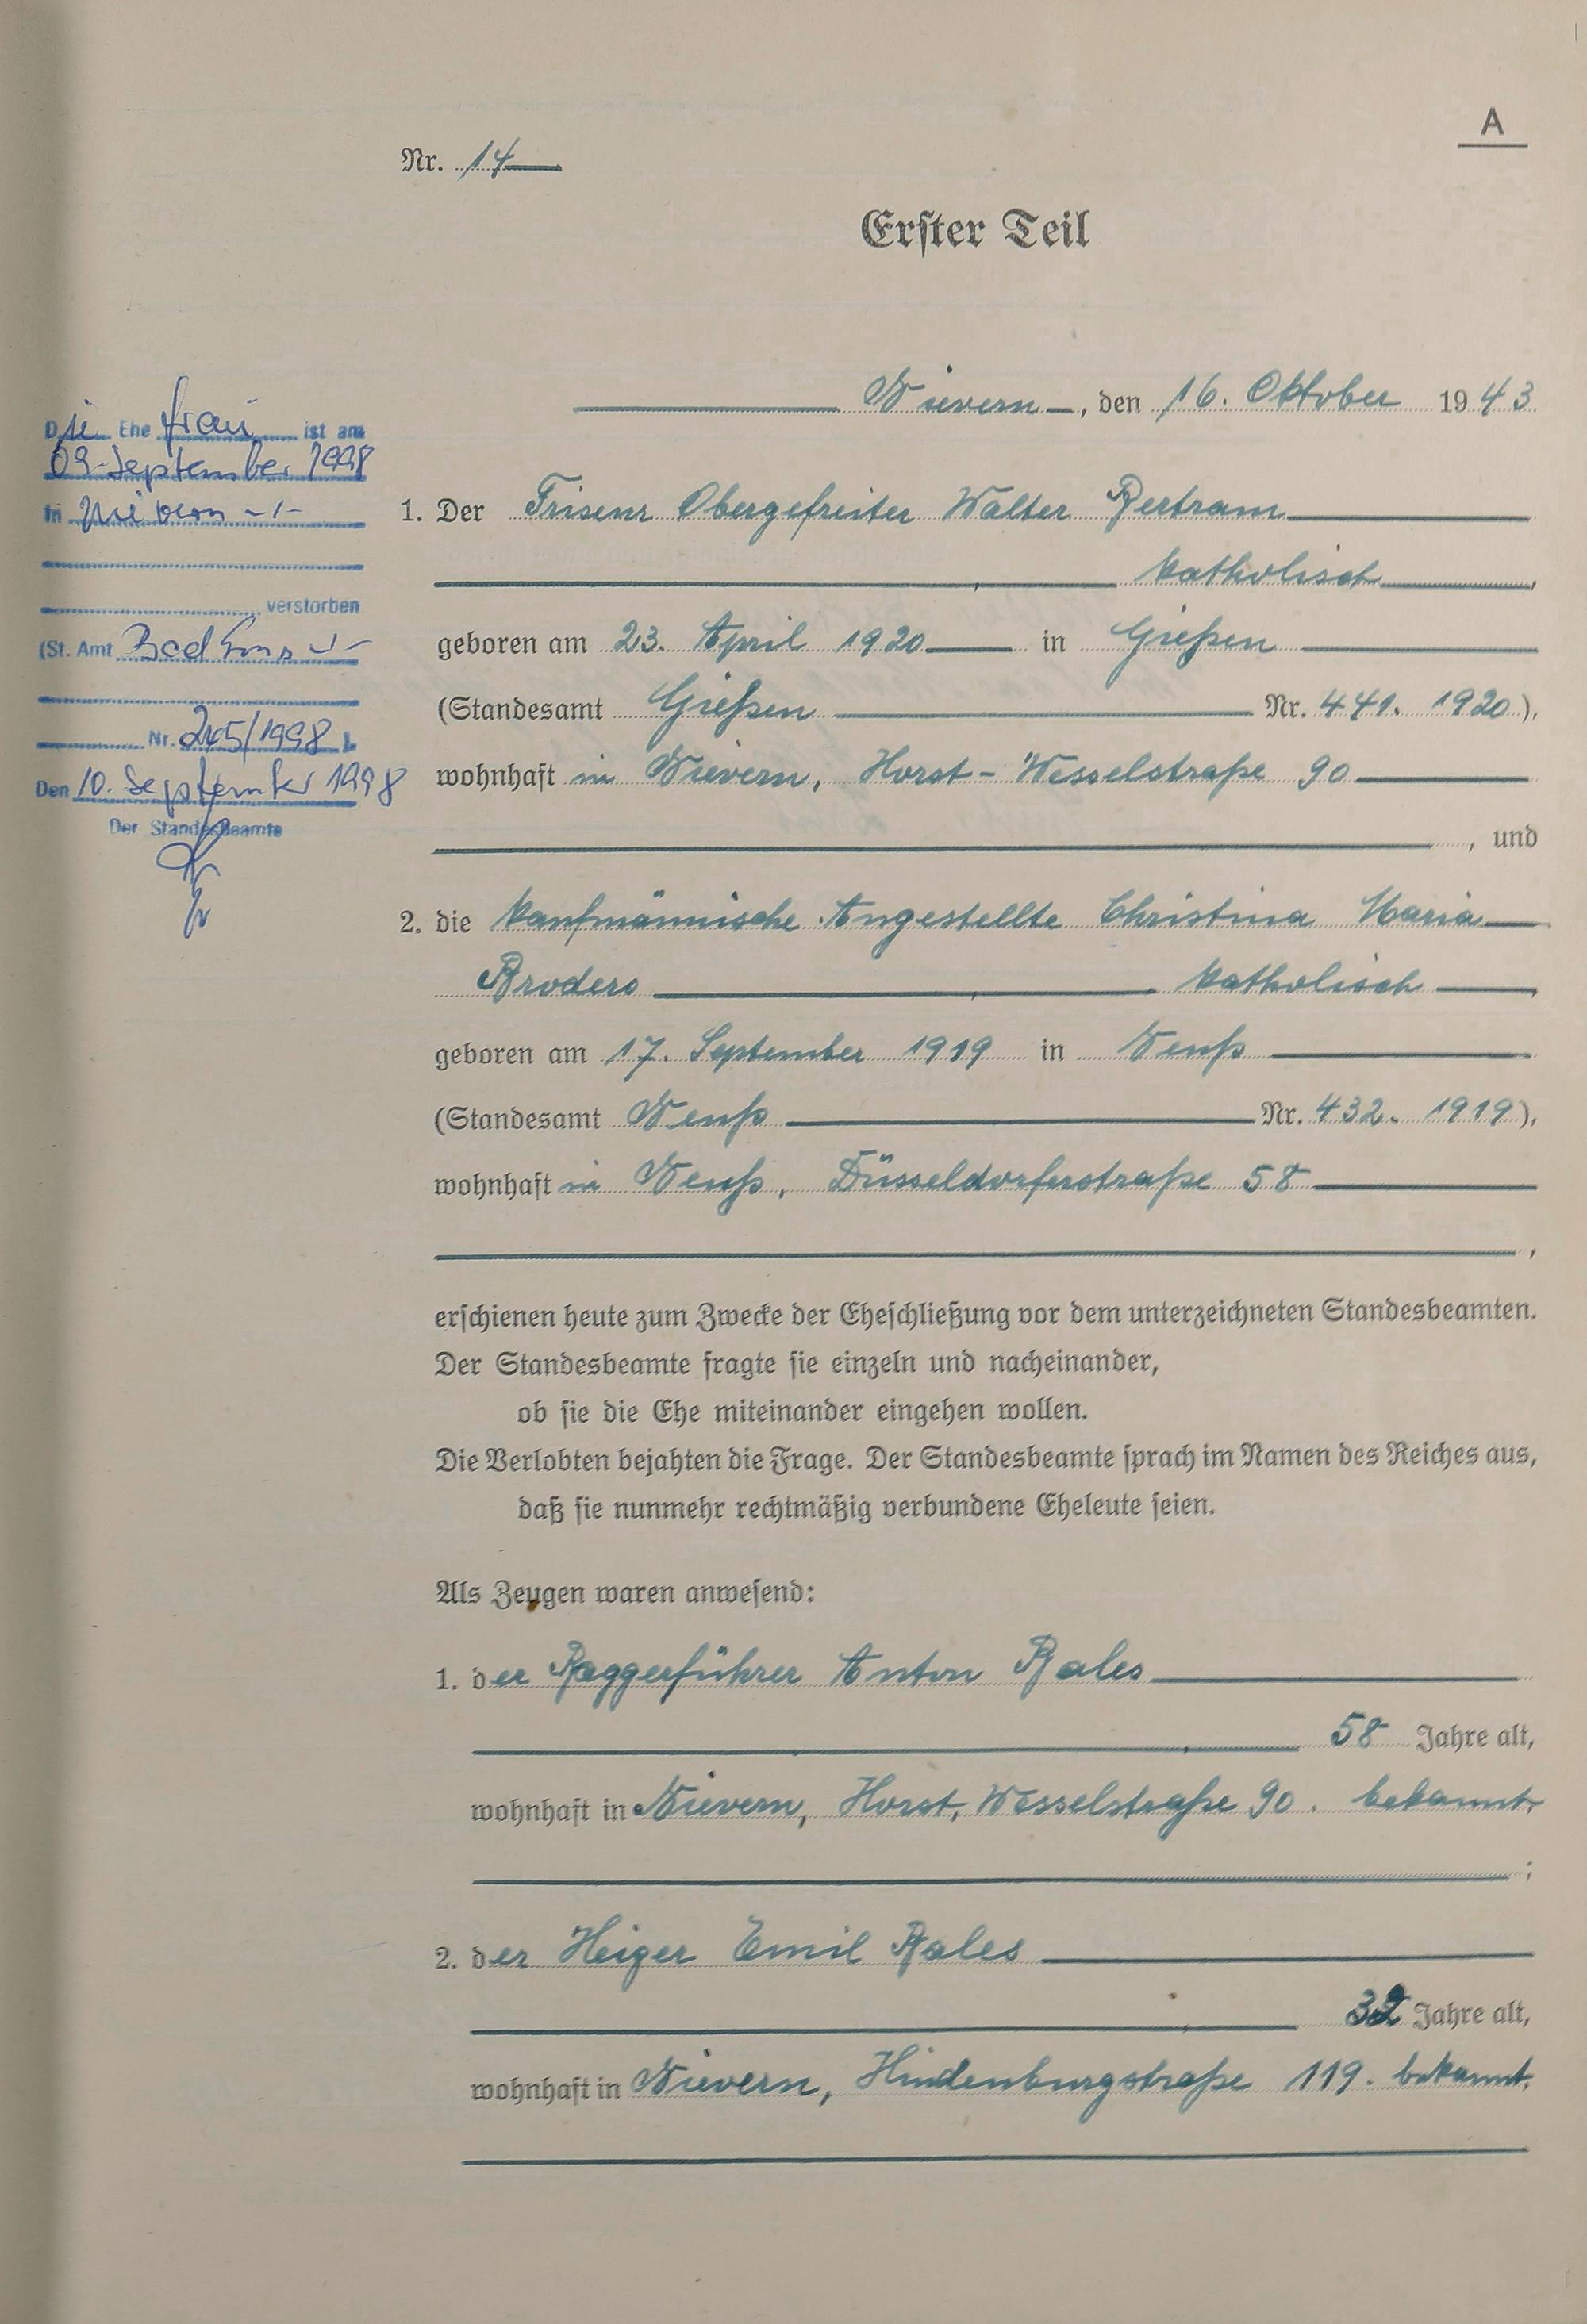 A
Nr. 14
Erster Teil
Nievern, den 16. Oktober 1943
Die Ehe frau ist am
09. September 1998
in Nievern -/-
verstorben
(St. Amt Bad Ems -/-
Nr. 245/1998).
Den 10. September 1998
Der Standesbeamte
1. Der Friseur Obergefreiter Walter Bertram
, katholisch,
geboren am 23. April 1920 in Gießen
(Standesamt Gießen Nr. 441. 1920),
wohnhaft in Nievern, Horst-Wesselstraße 90
, und
2. die kaufmännische Angestellte Christina Maria
Broders, katholisch,
geboren am 17. September 1919 in Neuß
(Standesamt Neuß Nr. 432. 1919),
wohnhaft in Neuß, Düsseldorferstraße 58
,
erschienen heute zum Zwecke der Eheschließung vor dem unterzeichneten Standesbeamten.
Der Standesbeamte fragte sie einzeln und nacheinander,
ob sie die Ehe miteinander eingehen wollen.
Die Verlobten bejahten die Frage. Der Standesbeamte sprach im Namen des Reiches aus,
daß sie nunmehr rechtmäßig verbundene Eheleute seien.
Als Zeugen waren anwesend:
1. der Baggerführer Anton Bales
, 58 Jahre alt,
wohnhaft in Nievern, Horst, Wesselstraße 90. bekannt,
;
2. der Heizer Emil Bales
, 32 Jahre alt,
wohnhaft in Nievern, Hindenburgstraße 119. bekannt.